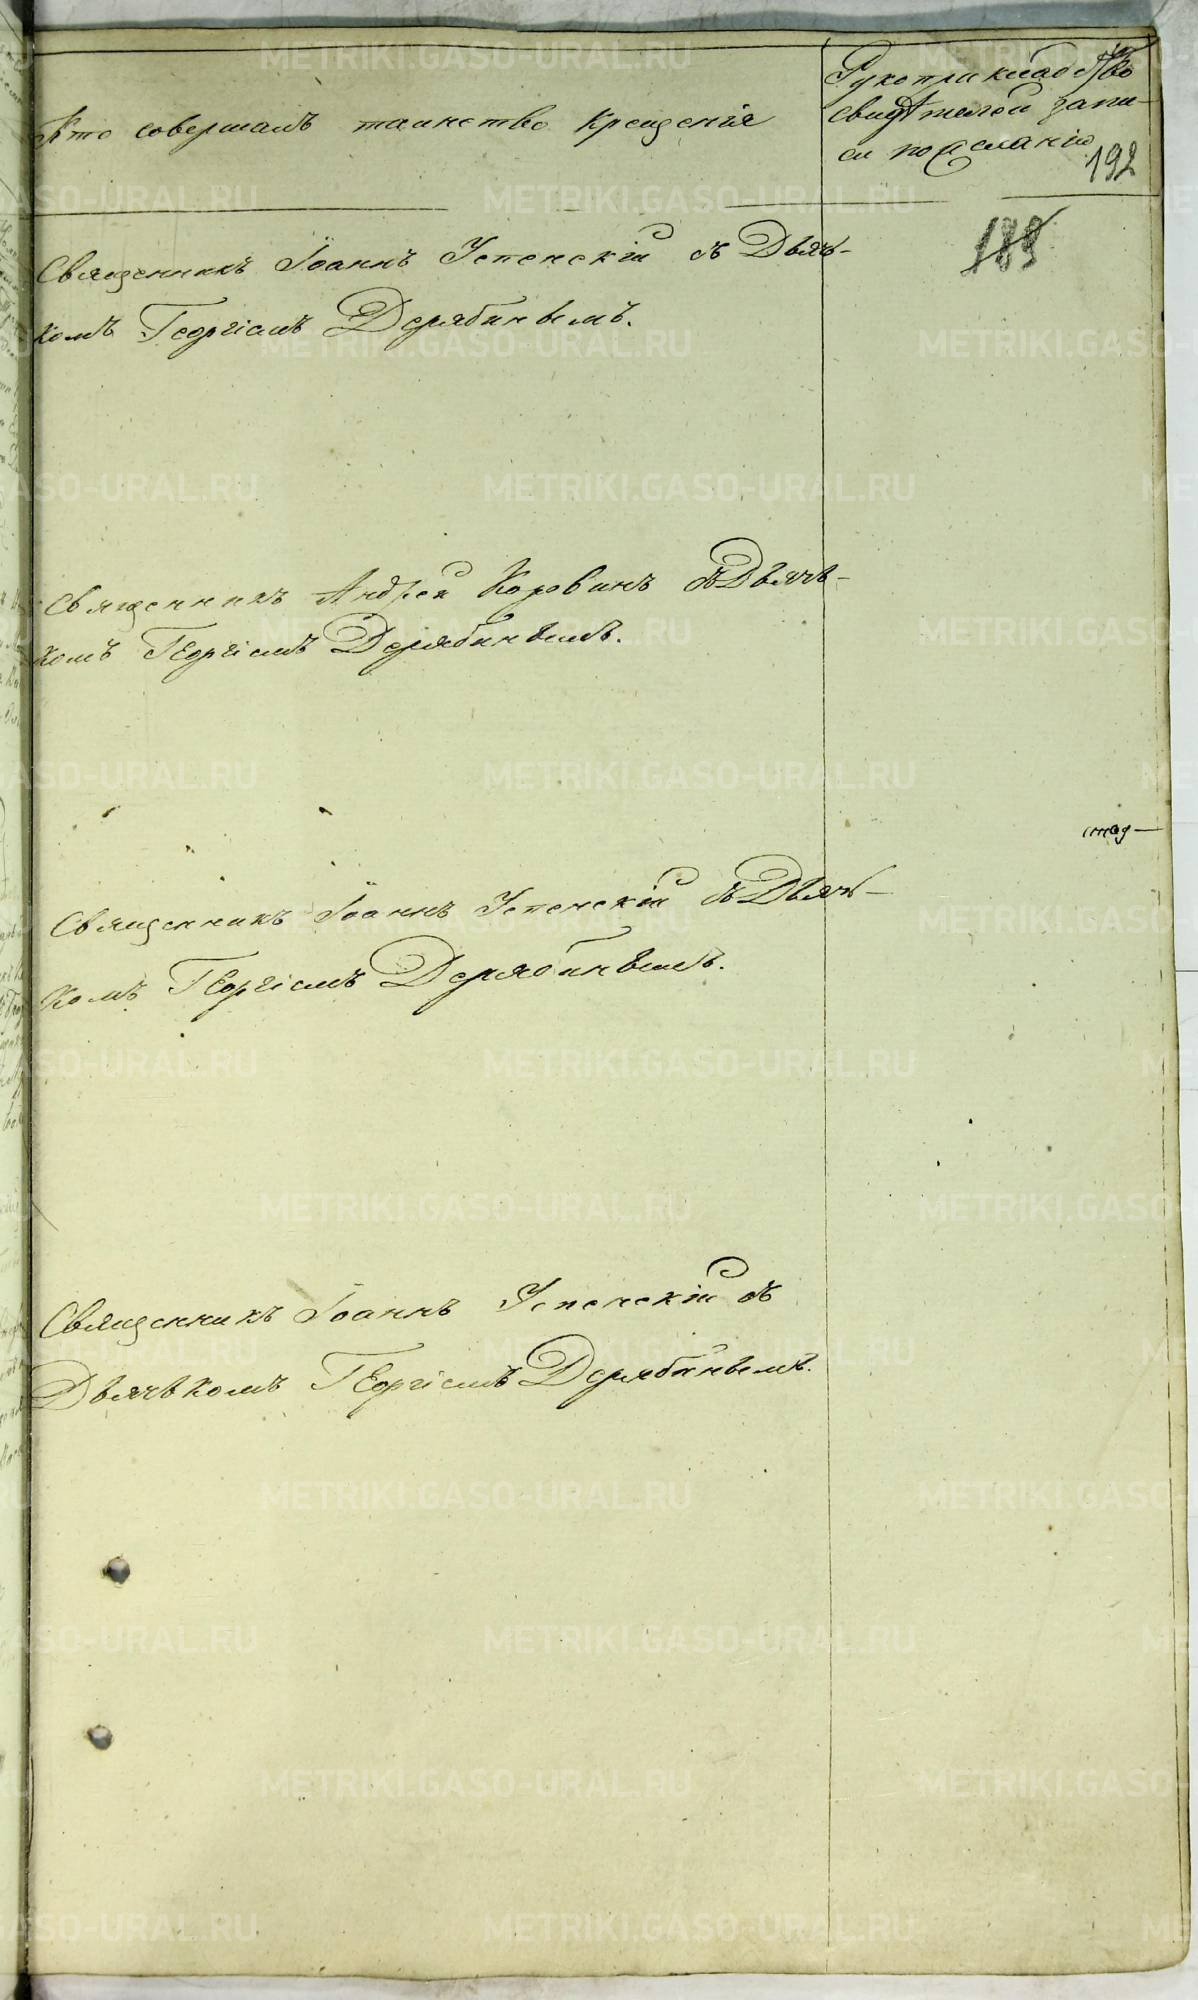 Кто совершалъ таинство крещенія
Рукоприкладство
свидѣтелей запи-
си по желанію
192
189
Священникъ Іоаннъ Успенскій съ Дьячь-
комъ Георгіемъ Дерябинымъ.
Священникъ Андрей Коровинъ съ Дьячь-
комъ Георгіемъ Дерябинымъ.
Священникъ Іоаннъ Успенскій съ Дьячь-
комъ Георгіемъ Дерябинымъ.
Священникъ Іоаннъ Успенскій съ
Дьячькомъ Георгіемъ Дерябинымъ.
METRIKI.GASO-URAL.RU